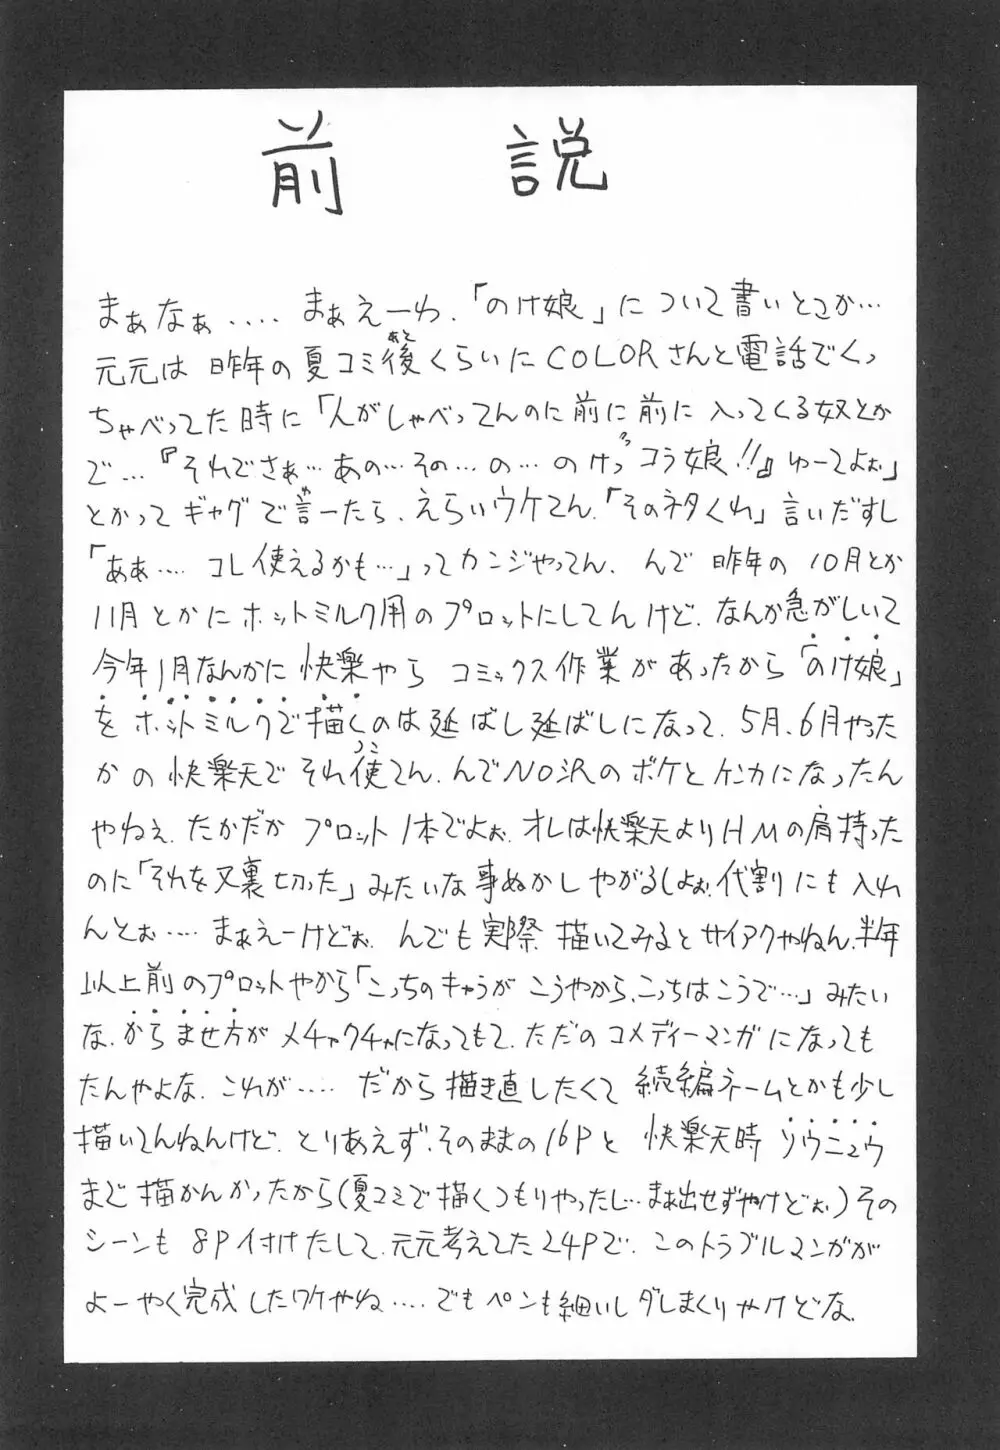 前説
まぁなぁ.... まぁえーわ.「のけ娘」について書いとこか...
元元は昨年の夏コミ後あとくらいにCOLORさんと電話でくっ
ちゃべってた時に「人がしゃべってんのに前に前に入ってくる奴とか
で...『それでさぁ...あの...その...の...のけっコラ娘!!』ゆーてよぉ」
とかってギャグで言やーたら、えらいウケてん.「そのネタくれ」言いだすし
「ああ.... コレ使えるかも...」ってカンジやってん. んで昨年の10月とか
11月とかにホットミルク用のプロットにしてんけど. なんか急がしいて
今年1月なんかに快楽やらコミックス作業があったから「のけ娘」
をホットミルクで描くのは延ばし延ばしになって. 5月、6月やった
かの快楽天でそれ使つこてん. んでNO沢のボケとケンカになったん
やねぇ. たかだかプロット1本でよぉ. オレは快楽天よりHMの肩持った
のに「それを又裏切った」みたいな事ぬかしやがるしよぉ. 代割にも入れ
んとぉ.... まぁえーけどぉ. んでも実際描いてみるとサイアクやねん. 半年
以上前のプロットやから「こっちのキャラが こうやから、こっちはこうで...」みたい
な. からませ方がメチャクチャになってもて. ただのコメディーマンガになっても
たんやよな. これが.... だから描き直したくて続編ネームとかも少し
描いてんねんけど. とりあえず、そのままの16Pと 快楽天時ソウニュウ
まで描かんかったから(夏コミで描くつもりやったし...まぁ出せずやけどぉ)その
シーンも8P付けたして. 元元考えてた24Pで. このトラブルマンガが
よーやく完成したワケやね.... でもペンも細いしダしまくりやけどな.